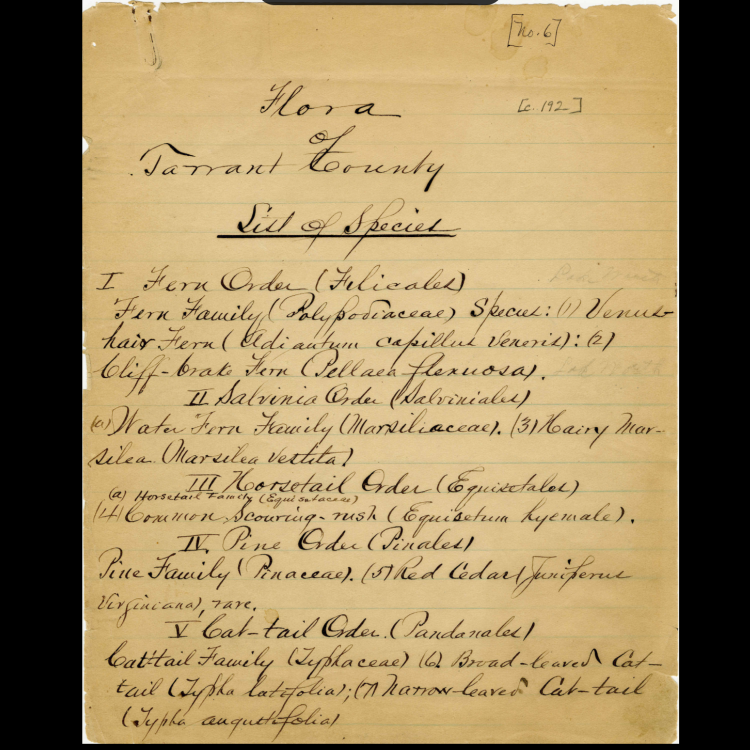 [No. 6]
Flora
[c. 192-]
of
Tarrant County
List of Species
I Fern Order (Filicales)
Fern Family (Polypodiaceae) Species: (1) Venus-
hair Fern (Adiantum capillus Veneris): (2)
Cliff-brake Fern (Pellaea flexuosa).
II Salvinia Order (Salviniales)
(a) Water Fern Family (Marsiliaceae). (3) Hairy Mar-
silea (Marsilea vestita)
III Horsetail Order (Equisetales)
(a) Horsetail Family (Equisetaceae)
(4) Common Scouring-rush (Equisetum hyemale).
IV. Pine Order (Pinales)
Pine Family (Pinaceae). (5) Red Cedar (Juniperus
Virginiana), rare.
V Cat-tail Order. (Pandanales)
Cat-tail Family (Typhaceae) (6). Broad-leaved Cat-
tail (Typha latifolia); (7) Narrow-leaved Cat-tail
(Typha angustifolia)